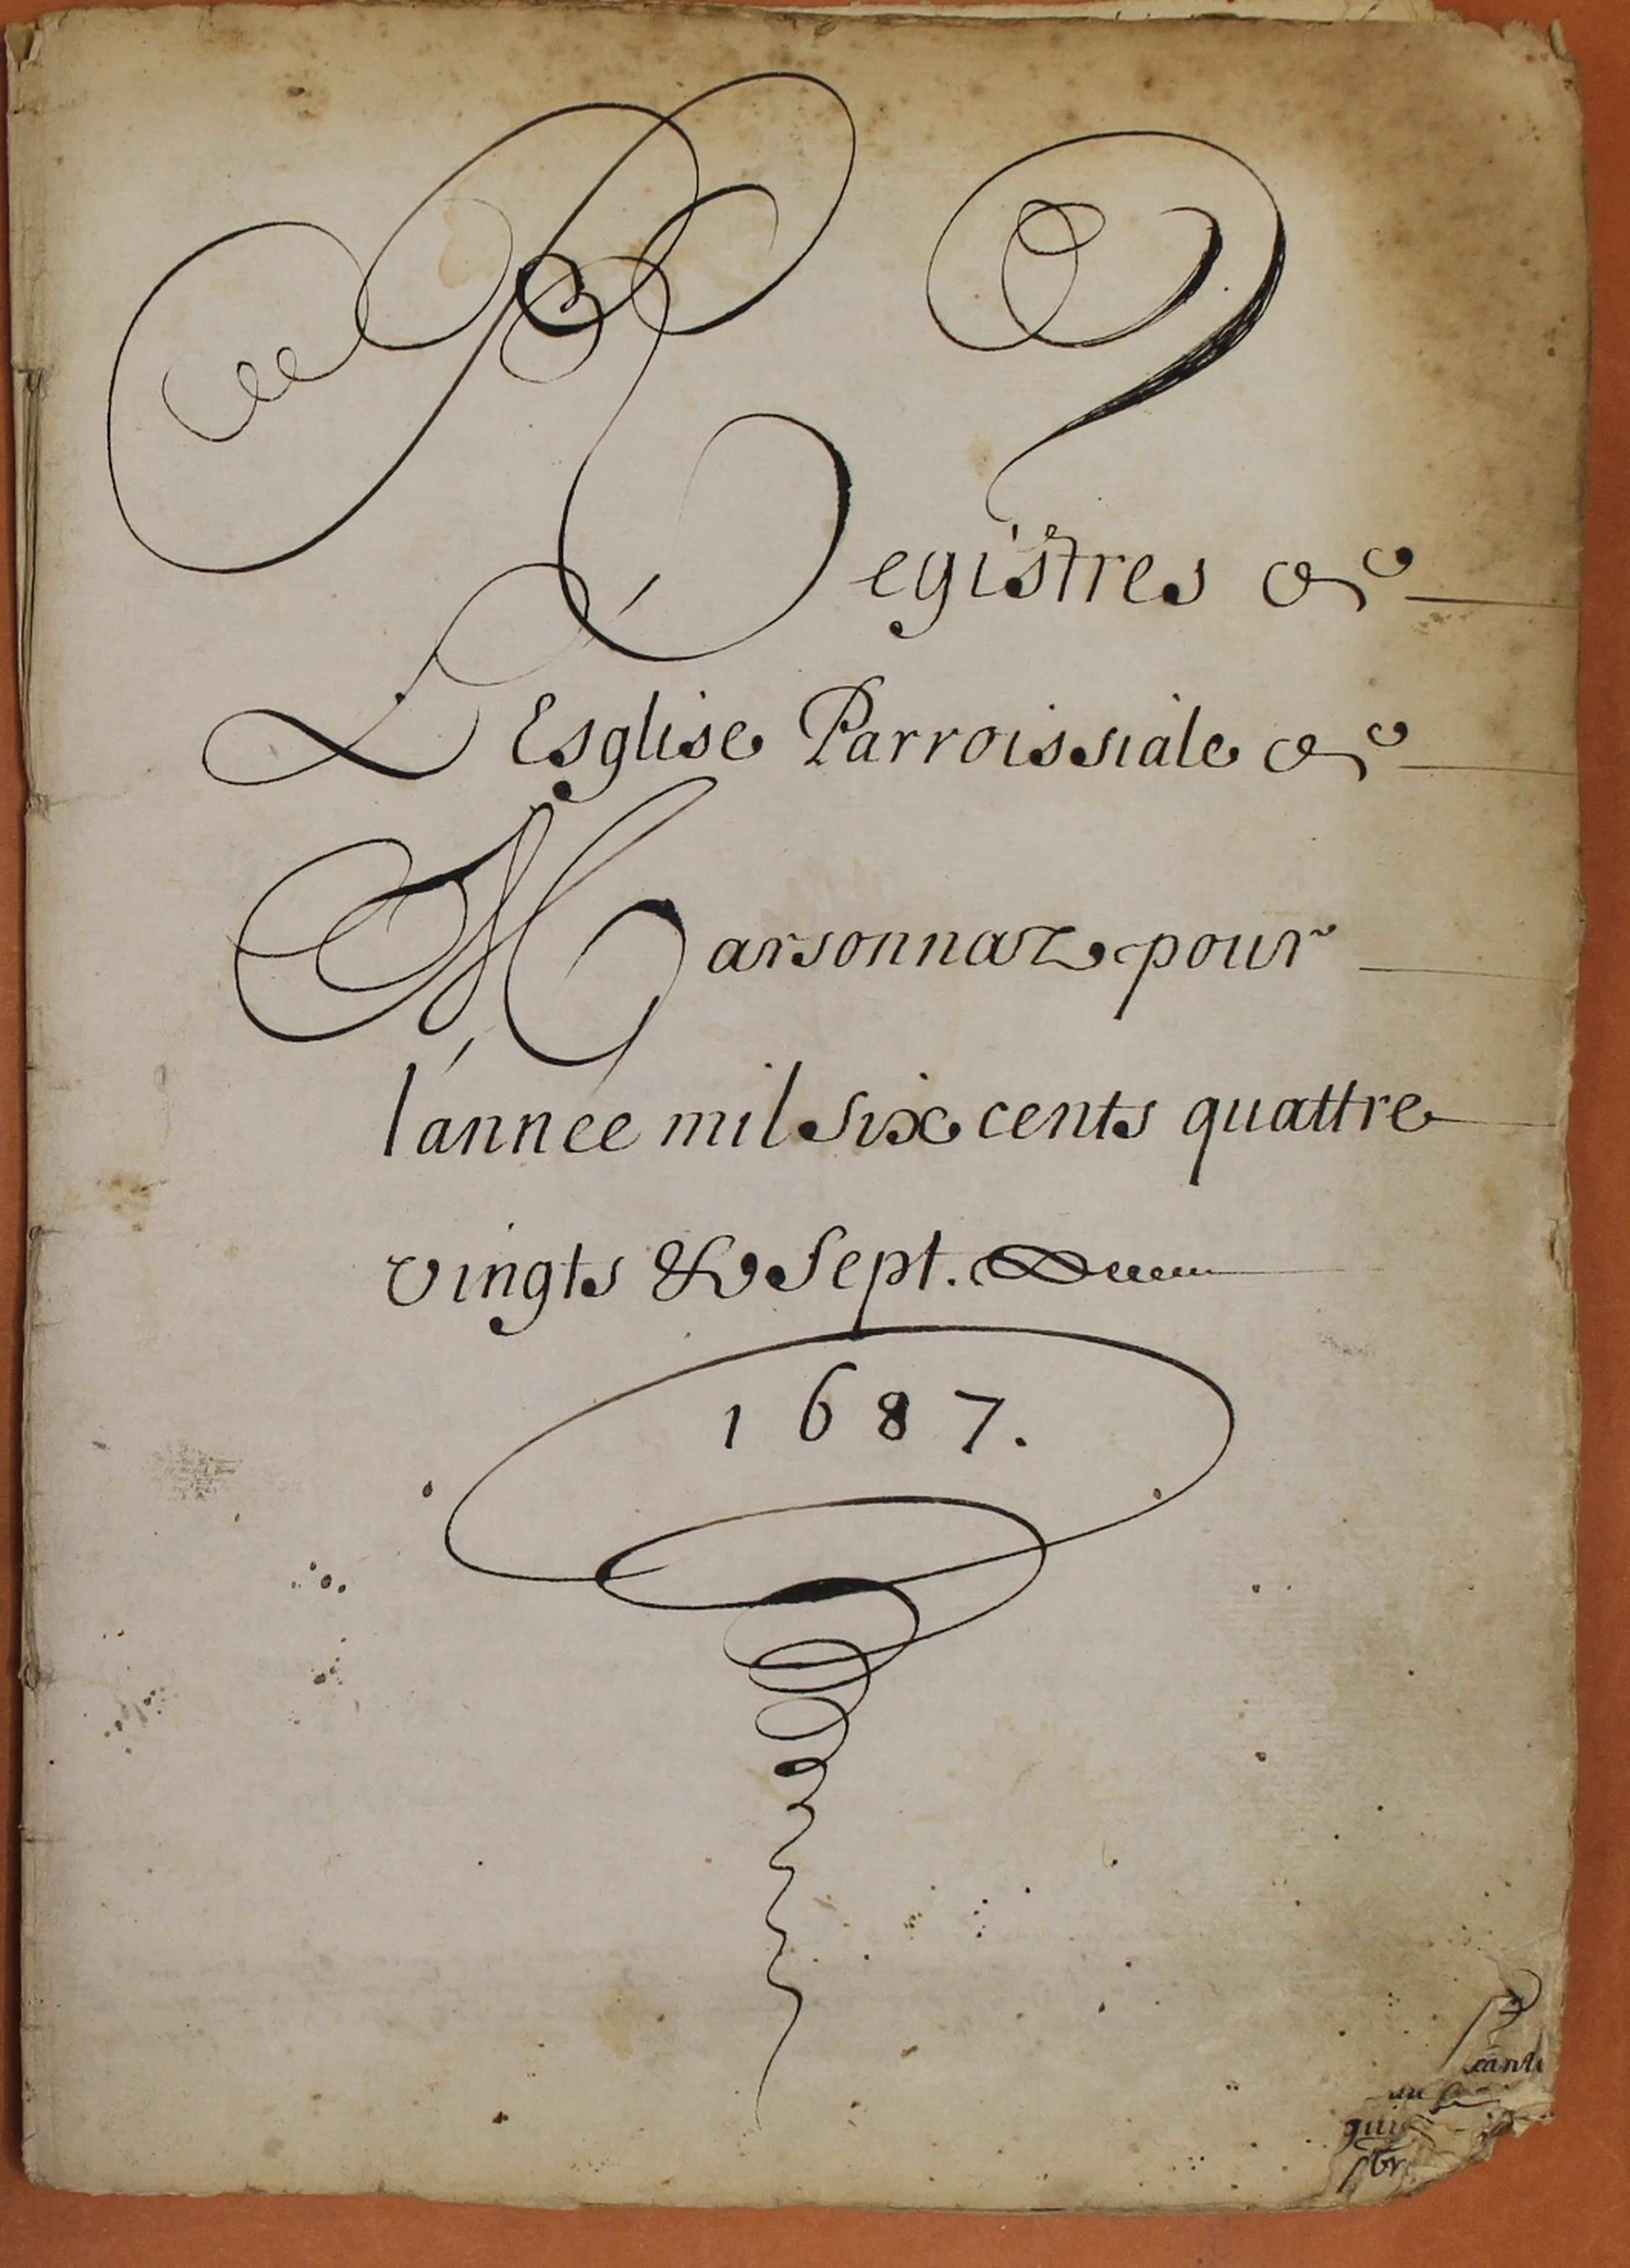 Registres de
L'Esglise Parroissiale de
Marsonnaz pour
l'annee mil six cents quattre
vingts & sept.
1687.